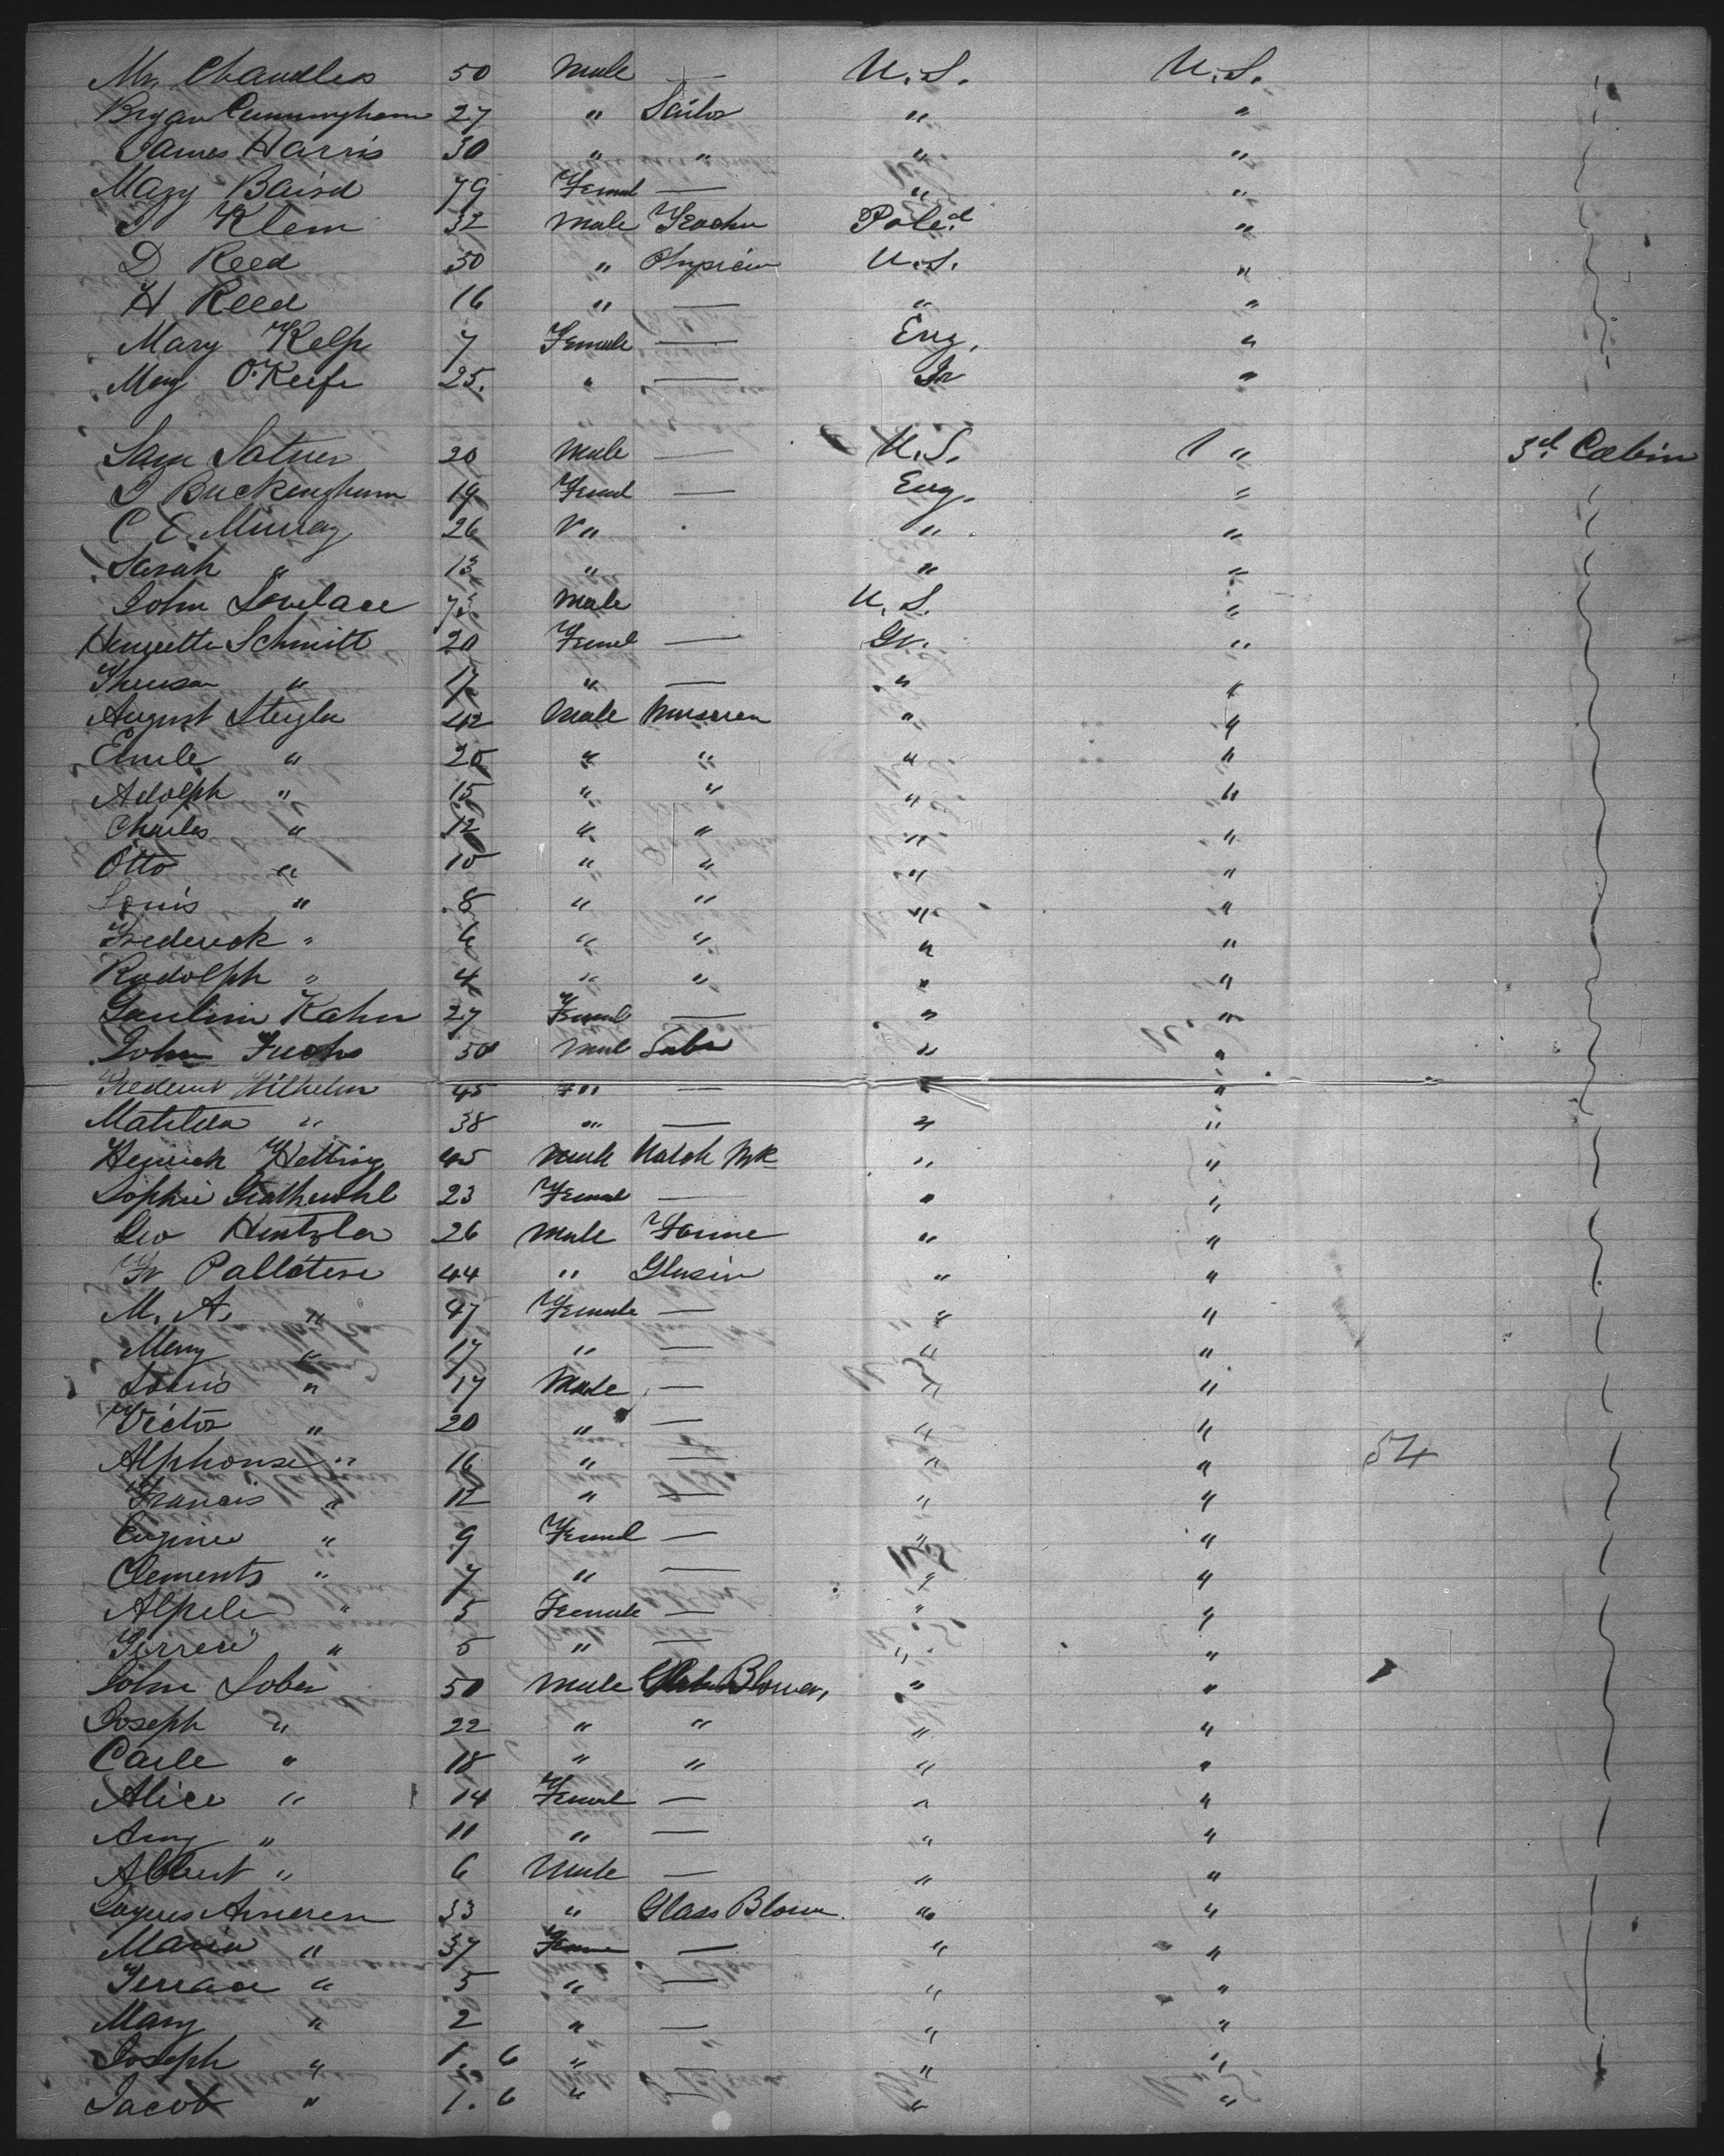 Mr. Chandler 50 Male — U.S. U.S.
Bryan Cunningham 27 " Sailor " "
James Harris 30 " " " "
Mary Baird 79 Femal — " "
Klem 32 Male Teacher Poled "
D Reed 50 " Physician U.S. "
H Reed 16 " — " "
Mary Kelp 7 Female — Eng. "
Mary O'Keefe 25. " — Ir "
Sam 20 Male — U.S. " 3d. Cabin
Buckingham 19 Femal — Eng. "
C E. Murray 26 " " "
Sarah " 13 " " "
John Lovelace 73 Male U.S. "
Henrietta Schmitt 20 Femel — Gr. "
" 17 " — " "
August 42 Male " "
Emile " 20 " " " "
Adolph " 15 " " " "
Charles " 12 " " " "
Otto " 10 " " " "
Louis " 8 " " " "
Frederick " 6 " " " "
Rudolph " 4 " " " "
Kahn 27 Femal — " "
John Fuchs 50 Mal " "
Wilhelm 45 " — " "
Matilda " 38 " — " "
Heinrich 45 Male Watch Mk " "
Sophie 23 Femal — " "
Geo Hentzler 26 Male " "
Fr Pallotere 44 " " "
M. A. " 47 Female — " "
Mery " 17 " — " "
Louis " 17 Male — " "
Victor " 20 " — " "
Alphonse " 16 " — " " 54
Francis " 12 " — " "
Eugine " 9 Femal — " "
Clements " 7 " — " "
" 5 Female — " "
" 5 " — " "
John Lober 50 Male Blower, " "
Joseph " 22 " " " "
Carle " 18 " " " "
Alice " 14 Femal — " "
Amy " 11 " — " "
Albert " 6 Male — " "
33 " Glass Blower " "
Maria " 37 — " "
" 5 " — " "
Mary " 2 " — " "
Joseph " 1. 6 " " "
Jacob " 1. 6 " — " "